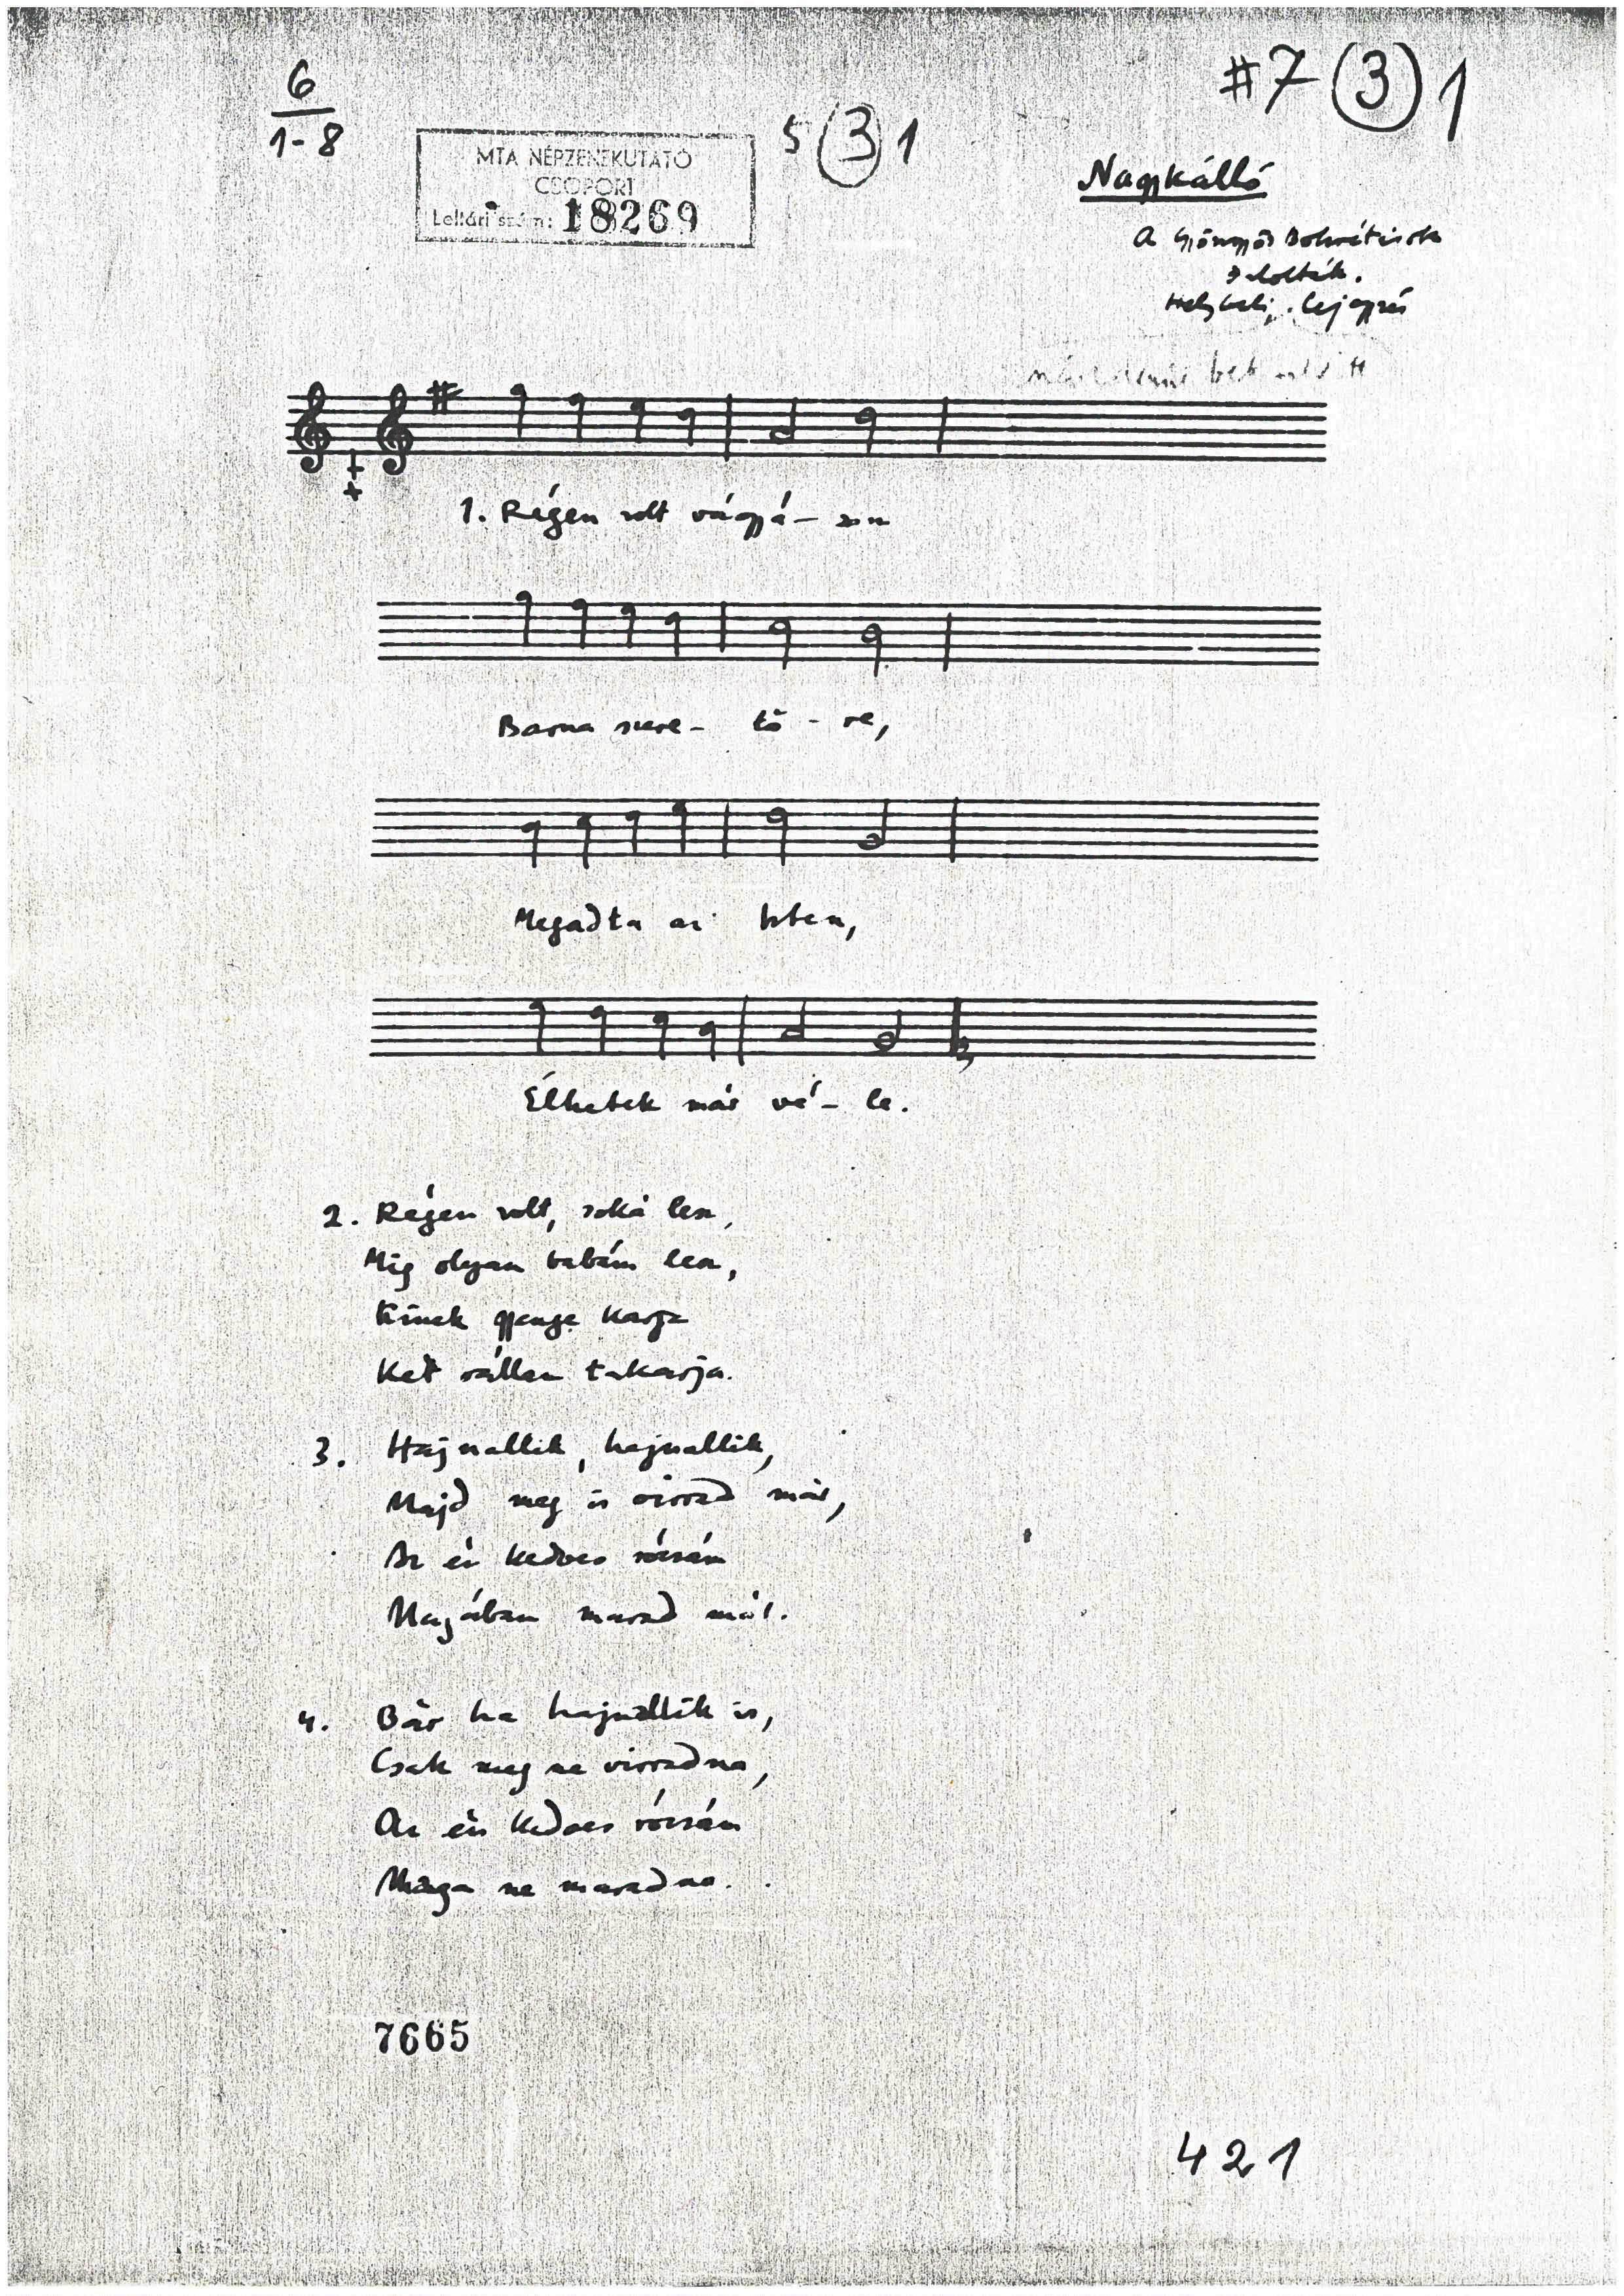 #7 (3) 1
6
1-8
5 (3) 1
MTA NÉPZENEKUTATÓ
CSOPORT
Leltári szám: 18269
Nagykálló
A Gyöngyös Bokrétások
dalolták.
Helybeli lejegyzés
1. Régen volt vágyá- som
Barna szere- tő - re,
Megadta az Isten,
Élhetek már vé- le.
2. Régen volt, soká lesz,
Mig olyan babám lesz,
Kinek gyenge karja
Két vállam takarja.
3. Hajnallik, hajnallik,
Majd meg is virrad már,
Az én kedves rózsám
Magában marad már.
4. Bár ha hajnallik is,
Csak meg ne virradna,
Az én kedves rózsám
Maga ne maradna.
7665
421